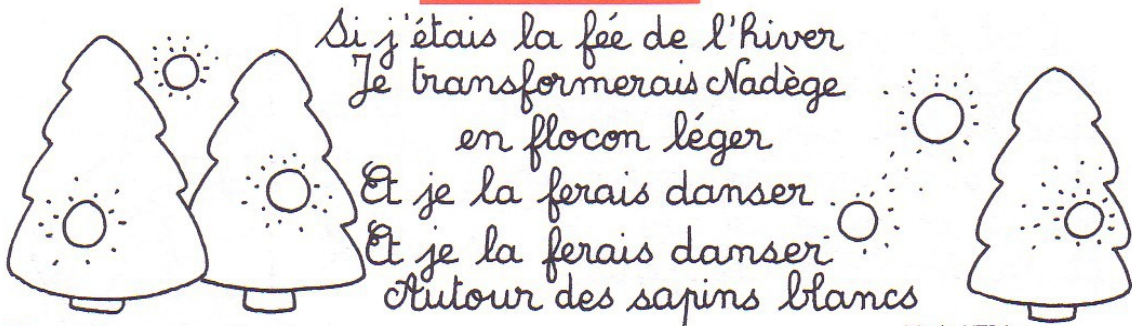 Si j'étais la fée de l'hiver
Je transformerais Nadège
en flocon léger
Et je la ferais danser
Et je la ferais danser
Autour des sapins blancs